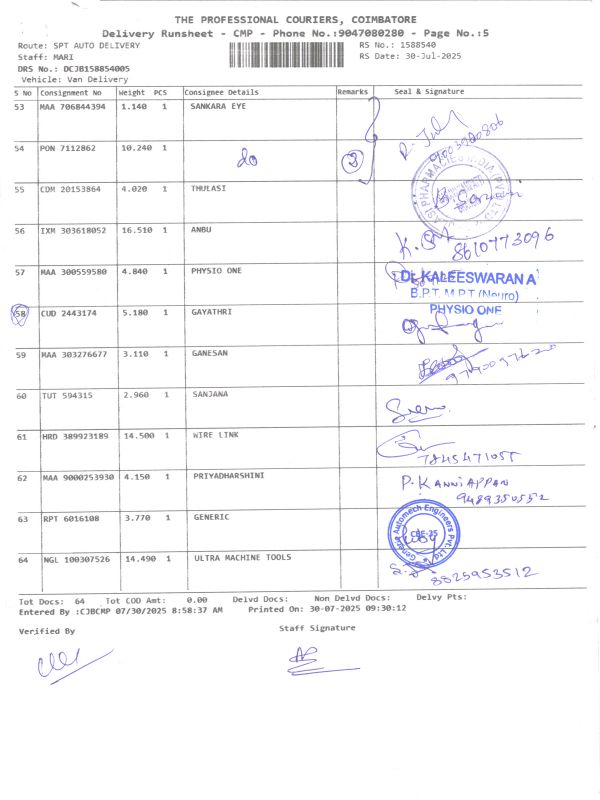 THE PROFESSIONAL COURIERS, COIMBATORE
Delivery Runsheet - CMP - Phone No.:9047080280 - Page No.:5
Route: SPT AUTO DELIVERY RS No.: 1588540
Staff: MARI RS Date: 30-Jul-2025
DRS No.: DCJB158854005
Vehicle: Van Delivery
S No Consignment No Weight PCS Consignee Details Remarks Seal & Signature
53 MAA 706844394 1.140 1 SANKARA EYE
54 PON 7112862 10.240 1 do 3
55 CDM 20153864 4.020 1 THULASI
56 IXM 303618052 16.510 1 ANBU 8610773096
57 MAA 300559580 4.840 1 PHYSIO ONE Dr. KALEESWARAN A
B.P.T, M.P.T (Neuro)
PHYSIO ONE
58 CUD 2443174 5.180 1 GAYATHRI
59 MAA 303276677 3.110 1 GANESAN
60 TUT 594315 2.960 1 SANJANA
61 HRD 389923189 14.500 1 WIRE LINK 7845471055
62 MAA 9000253930 4.150 1 PRIYADHARSHINI P. KANNIAPPAN
9489350552
63 RPT 6016108 3.770 1 GENERIC
64 NGL 100307526 14.490 1 ULTRA MACHINE TOOLS 8825953512
Tot Docs: 64 Tot COD Amt: 0.00 Delvd Docs: Non Delvd Docs: Delvy Pts:
Entered By :CJBCMP 07/30/2025 8:58:37 AM Printed On: 30-07-2025 09:30:12
Verified By Staff Signature